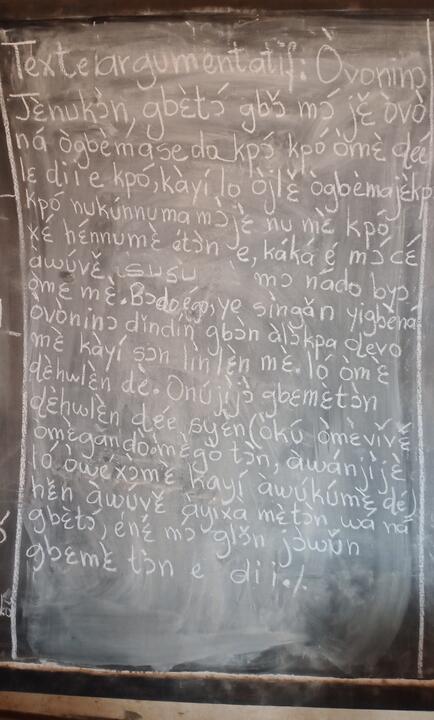 Texte argumentatif: Òvoninɔ
Jɛ̀nukɔ̀n, gbɛ̀tɔ́ gbɔ̌ mɔ́ jɛ̌ òvò
ná ògbɛ̀másedo kpɔ́ kpó òmɛ̀ ɖeé
le dii e kpó, kàyí lo òjlɛ̌ ògbɛ̀majɛ̀kp
kpó nukúnnuma mɔ̀ jɛ̀ nu mɛ̀ kpó
xé hɛ́nnumɛ̀ étɔ̀n e, káká é mɔ́ cé
àwúvɛ̌ susu mɔ nádo byɔ
òmɛ mɛ̀. Bɔdo égo, ye sìngǎn yigbɛ̀ná
òvòninɔ dǐndín gbɔ̀n àlɔ̀kpa ɖevo
mɛ̀ kàyí sɔ̀n lìnlɛ̀n mɛ̀. ló òmɛ̀
ɖɛ̀hwlɛ̀n ɖè. Onújíjɔ̀ gbɛmɛ̀tɔ̀n
ɖɛ̀hwlɛ̀n ɖée syɛ́n (òkú òmɛ̀vívɛ̌
òmɛ̀gandomɛ̀go tɔ̀n, àwánjíjɛ
ló òwexɔ̀mɛ̀ kàyí àwúkúmɛ̀ ɖé)
hɛ̌n àwúvɛ̌ àyìxa mɛ̀tɔ̀n wá ná
gbɛ̀tɔ́, énɛ́ mɔ̀ glɔ̌n jɔ̀wǔn
gbɛmɛ̀ tɔ̀n e dii./.